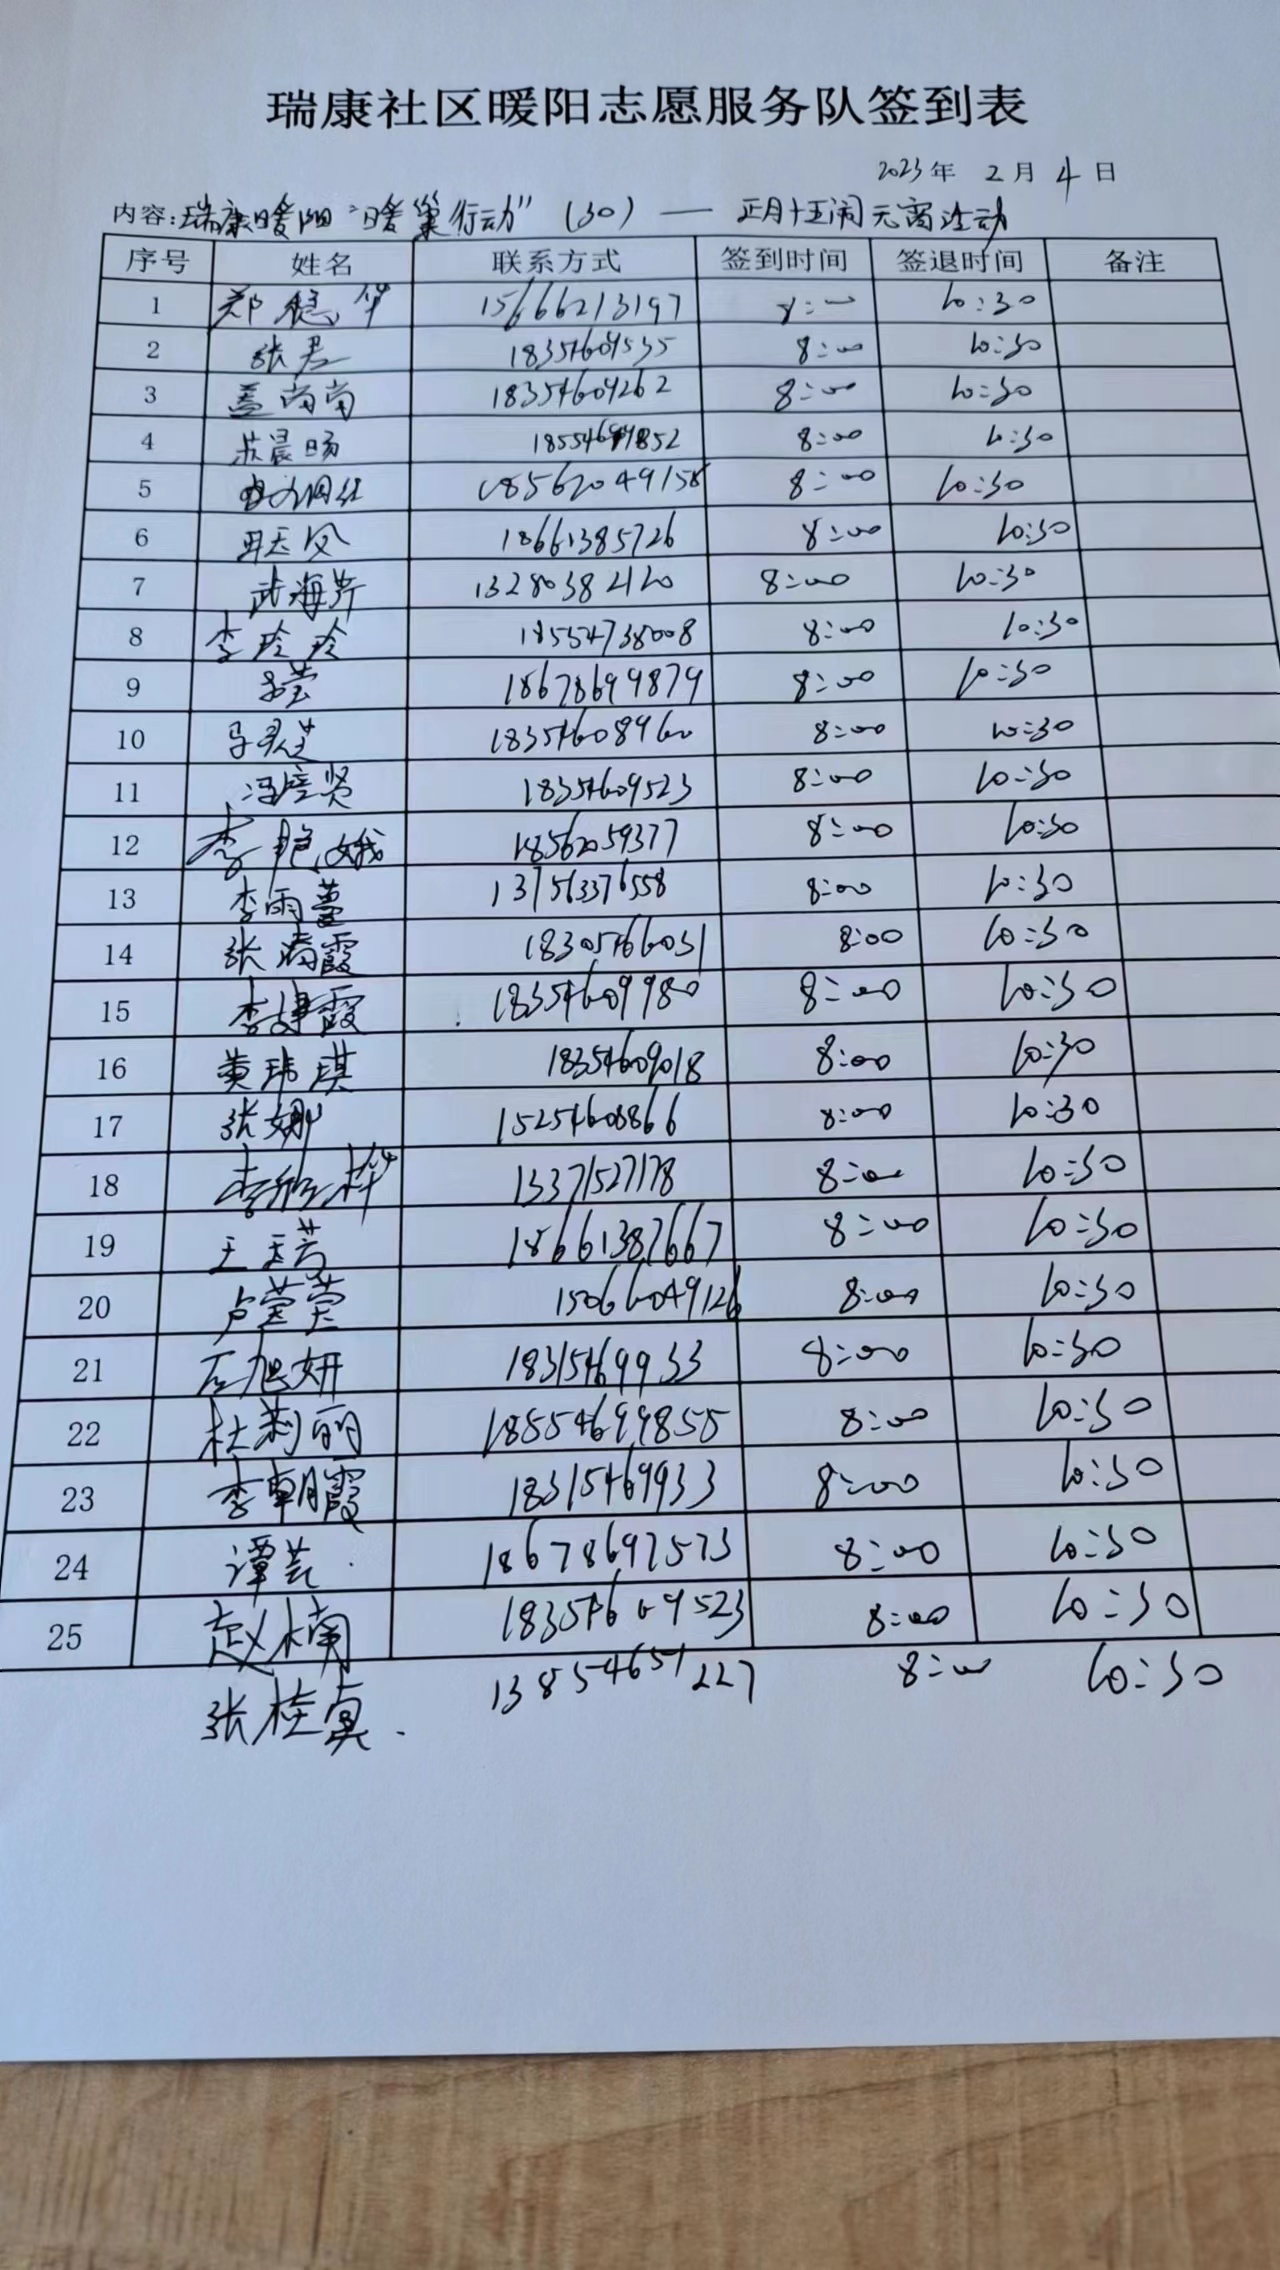 瑞康社区暖阳志愿服务队签到表
2023年 2月 4日
内容:瑞康暖阳"暖巢行动"(30)—— 正月十五闹元宵活动
序号 姓名 联系方式 签到时间 签退时间 备注
1 郑 15666213197 8:00 10:30
2 张君 18354609535 8:00 10:30
3 盖南南 18354609262 8:00 10:30
4 晨旸 8:00 10:30
5 18562049158 8:00 10:30
6 18661385726 8:00 10:30
7 武海 13280382120 8:00 10:30
8 李玲玲 18554738008 8:00 10:30
9 18678699879 8:00 10:30
10 马灵芝 18354608960 8:00 10:30
11 冯培贤 18354609523 8:00 10:30
12 李艳娥 18562059377 8:00 10:30
13 李雨蔓 8:00 10:30
14 张 霞 18305466031 8:00 10:30
15 李 霞 18354609980 8:00 10:30
16 黄玮琪 18354609018 8:00 10:30
17 张娜 15254608866 8:00 10:30
18 李 梓 13371527178 8:00 10:30
19 王玉芳 18661387667 8:00 10:30
20 卢莹莹 15066049126 8:00 10:30
21 石旭妍 18315469933 8:00 10:30
22 杜莉丽 18554699855 8:00 10:30
23 李朝霞 18315469933 8:00 10:30
24 谭芸 18678697573 8:00 10:30
25 赵楠 18354609523 8:00 10:30
张桂贞 13854651227 8:00 10:30